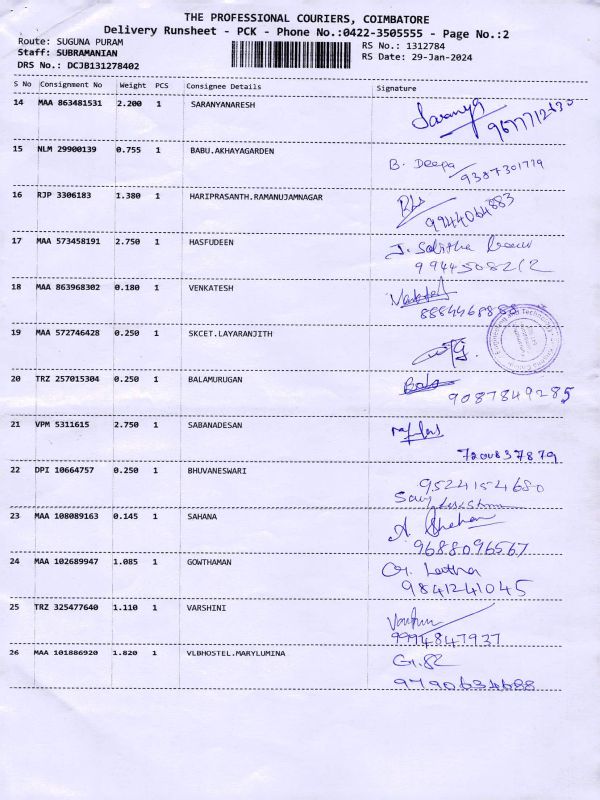 THE PROFESSIONAL COURIERS, COIMBATORE
Delivery Runsheet - PCK - Phone No.:0422-3505555 - Page No.:2
Route: SUGUNA PURAM RS No.: 1312784
Staff: SUBRAMANIAN RS Date: 29-Jan-2024
DRS No.: DCJB131278402
S No Consignment No Weight PCS Consignee Details Signature
14 MAA 863481531 2.200 1 SARANYANARESH Saranya
15 NLM 29900139 0.755 1 BABU.AKHAYAGARDEN B. Deepa
9387301779
16 RJP 3306183 1.380 1 HARIPRASANTH.RAMANUJAMNAGAR
9944064883
17 MAA 573458191 2.750 1 HASFUDEEN J. Sabitha
9944508212
18 MAA 863968302 0.180 1 VENKATESH
19 MAA 572746428 0.250 1 SKCET.LAYARANJITH
20 TRZ 257015304 0.250 1 BALAMURUGAN Bala
9087849285
21 VPM 5311615 2.750 1 SABANADESAN
7200837879
22 DPI 10664757 0.250 1 BHUVANESWARI 9524154680
23 MAA 108089163 0.145 1 SAHANA
9688096567
24 MAA 102689947 1.085 1 GOWTHAMAN Latha
9841241045
25 TRZ 325477640 1.110 1 VARSHINI
9994847937
26 MAA 101886920 1.820 1 VLBHOSTEL.MARYLUMINA
9790634688